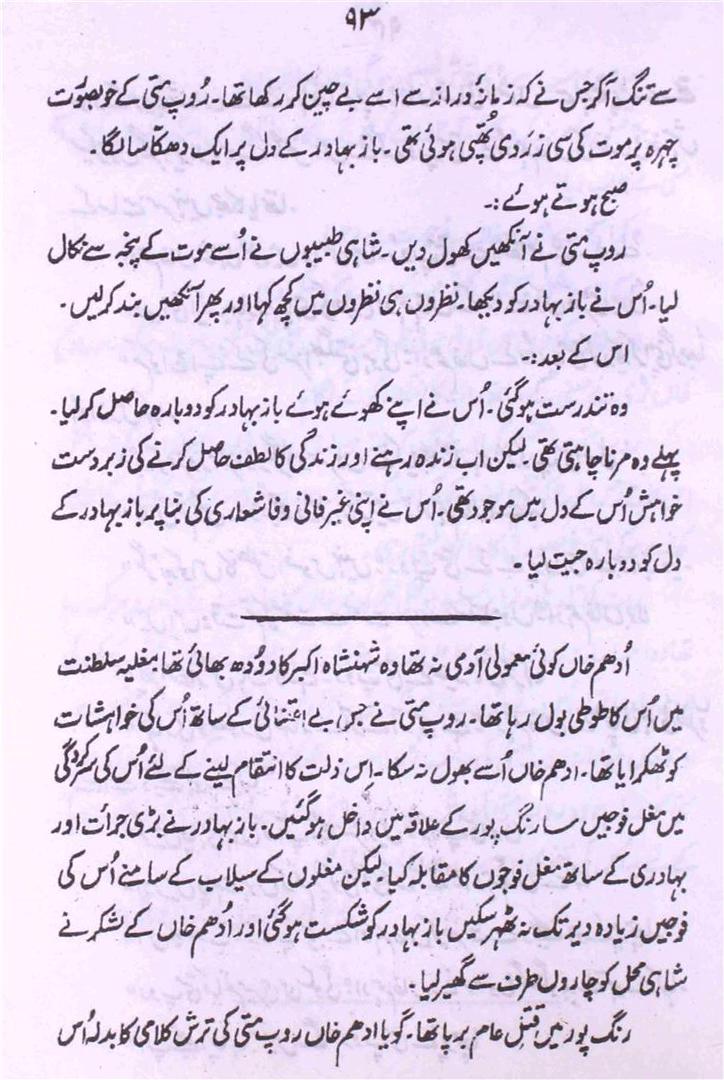 ۹۳
سے تنگ آکر جس نے کہ زمانۂ دراز سے اسے بے چین کر رکھا تھا۔ رُوپ متی کے خوبصوت
چہرہ پر موت کی سی زَردی تُھپی ہوئی تھی۔ باز بہادر کے دل پر ایک دھکا سا لگا۔
صبح ہوتے ہوئے :۔
روپ متی نے آنکھیں کھول دیں۔ شاہی طبیبوں نے اُسے موت کے پنجہ سے نکال
لیا۔ اُس نے باز بہادر کو دیکھا۔ نظروں ہی نظروں میں کچھ کہا اور پھر آنکھیں بند کرلیں۔
اس کے بعد :۔
وہ تندرست ہوگئی۔ اُس نے اپنے کھوئے ہوئے باز بہادر کو دوبارہ حاصل کرلیا۔
پہلے وہ مرنا چاہتی تھی۔ لیکن اب زندہ رہنے اور زندگی کا لطف حاصل کرنے کی زبردست
خواہش اُس کے دل میں موجود تھی۔ اُس نے اپنی غیرفانی وفاشعاری کی بنا پر باز بہادر کے
دل کو دوبارہ جیت لیا۔
اُدھم خاں کوئی معمولی آدمی نہ تھا وہ شہنشاہ اکبر کا دُودھ بھائی تھا مغلیہ سلطنت
میں اُس کا طوطی بول رہا تھا۔ روپ متی نے جس بے اعتنائی کے ساتھ اُس کی خواہشات
کو ٹھکرایا تھا۔ ادھم خاں اُسے بھول نہ سکا۔ اِس ذلت کا انتقام لینے کے لئے اُس کی سرکردگی
میں مغل فوجیں سارنگ پور کے علاقہ میں داخل ہوگئیں۔ باز بہادر نے بڑی جرائت اور
بہادری کے ساتھ مغل فوجوں کا مقابلہ کیا۔ لیکن مغلوں کے سیلاب کے سامنے اُس کی
فوجیں زیادہ دیر تک نہ ٹھہر سکیں باز بہادر کو شکست ہوگئی اور اُدھم خاں کے لشکر نے
شاہی محل کو چاروں طرف سے گھیر لیا۔
رنگ پور میں قتلِ عام برپا تھا۔ گویا ادھم خاں روپ متی کی ترش کلامی کا بدلہ اُس